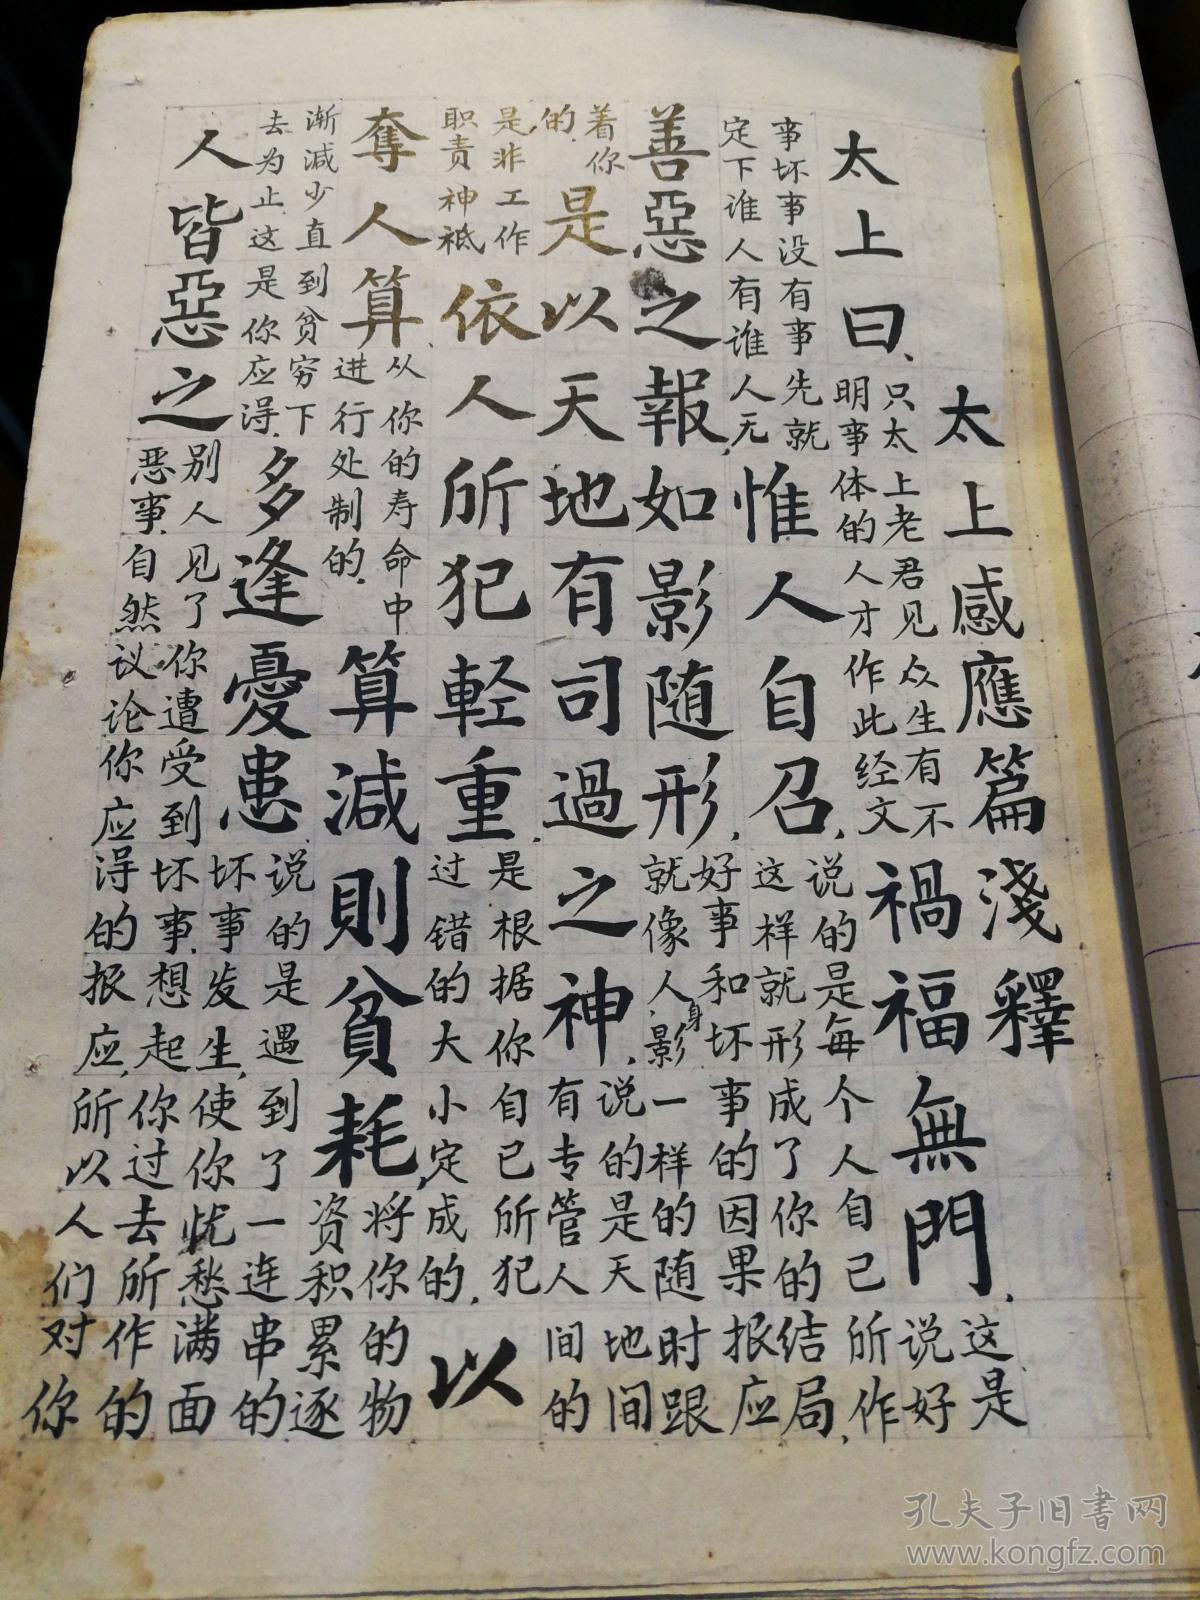 太上感應篇淺釋
太上曰、
只太上老君见众生有不
明事体的人才作此经文
禍福無門.
这是
说好
事坏事没有事先就
定下谁人有谁人无
惟人自召,
说的是每个人自已所作
这样就形成了你的结局,
善惡之報,如影随形,
好事和坏事的因果报应
就像人身影一样的随时跟
着你
的.
是以天地有司過之神.
说的是天地间
有专管人间的
是非工作
职责神祗
依人所犯輕重.
是根据你自已所犯
过错的大小定成的.
以
奪人算.
从你的寿命中
进行处制的.
算減則貧耗,
将你的物
资积累逐
渐減少直到贫穷下
去为止这是你应得.
多逢憂患
说的是遇到了一连串的
坏事发生,使你忧愁满面
人皆惡之
别人见了你遭受到坏事.想起你过去所作的
恶事.自然议论你应得的报应,所以人们对你
孔夫子旧书网
www.kongfz.com